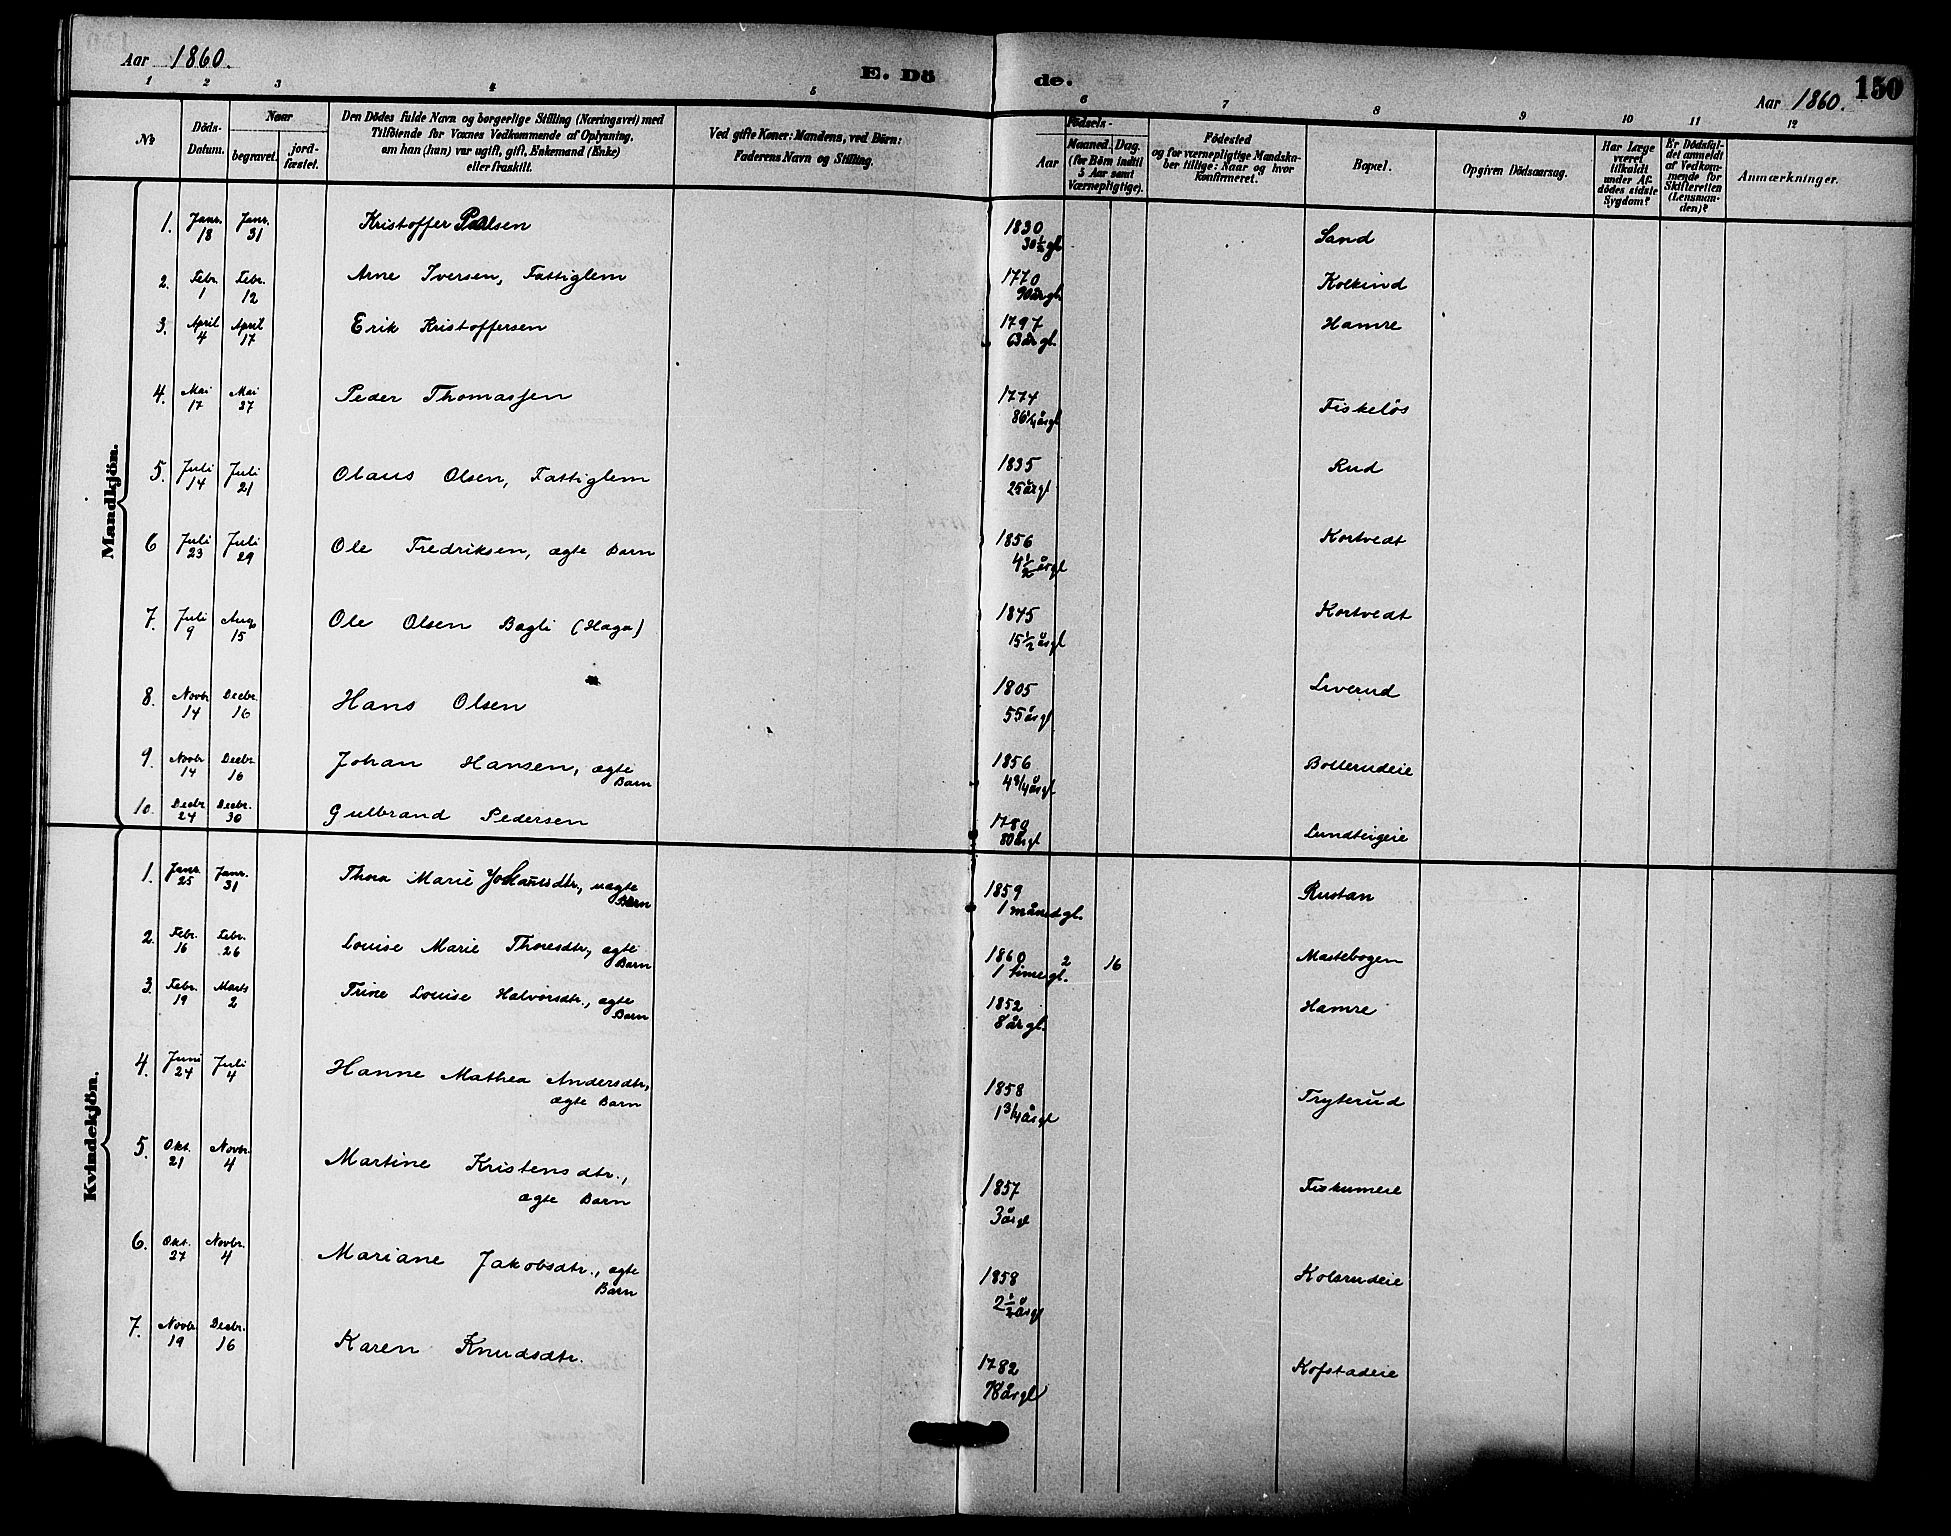 Aar 1860.
E. Dö de.
Aar 1860. 150
1 2 3 4 5 6 7 8 9 10 11 12
No
Döds-
Datum.
Naar
begravet.
jord-
fæstet.
Den Dödes fulde Navn og borgerlige Stilling (Næringsvei) med
Tilföiende for Voxnes Vedkommende af Oplysning,
om han (hun) var ugift, gift, Enkemand (Enke)
eller fraskilt.
Ved gifte Koner: Mandens, ved Börn:
Faderens Navn og Stilling.
Födsels-
Aar
Maaned. Dag.
(for Börn indtil
5 Aar samt
Værnepligtige).
Födested
og for værnepligtige Mandska-
ber tillige: Naar og hvor
konfirmeret.
Bopæl.
Opgiven Dödsaarsag.
Har Læge
været
tilkaldt
under Af-
dödes sidste
Sygdom?
Er Dödsfal-
det anmeldt
af Vedkom-
mende for
Skifteretten
(Lensman-
den)?
Anmærkninger.
Mandkjön.
1. Janr. 18 Janr. 31 Kristoffer Paalsen 1830 30½ gl. Sand
2. Febr. 1 Febr. 12 Arne Iversen, Fattiglem 1770 90år gl. Kolkind
3. April 4 April 17 Erik Kristoffersen 1797 63år gl. Hamre
4. Mai 17 Mai 27 Peder Thomassen 1774 86¼år gl Fiskelös
5. Juli 14 Juli 21 Olaus Olsen, Fattiglem 1835 25år gl Rud
6 Juli 23 Juli 29 Ole Fredriksen, ægte Barn 1856 4½ år gl Kortvedt
7. Juli 9 Aug 15 Ole Olsen Bagli (Haga) 1845 15½ år gl Kortvedt
8. Novbr 14 Decbr. 16 Hans Olsen 1805 55år gl Leverud
9. Novbr 14 Decbr. 16 Johan Hansen, ægte
Barn 1856 4¾år gl Bollerudeie
10. Decbr 24 Decbr. 30 Gulbrand Pedersen 1780 80år gl Lundteigeie
Kvindekjön.
1. Janr. 25 Janr. 31 Thora Marie Johannesdtr., uægte
Barn 1859 1 måned gl. Rustan
2. Febr. 16 Febr. 26 Louise Marie Thoresdtr, ægte
Barn 1860 2 16 1 time gl. Mastebogen
3. Febr. 19 Marts 2 Trine Louise Halvorsdtr., ægte
Barn 1852 8år gl. Hamre
4. Juni 24 Juli 4 Hanne Mathea Andersdtr,
ægte Barn 1858 1¾år gl Tryterud
5. Okt. 21 Novbr. 4 Martine Kristensdtr.,
ægte Barn 1857 3år gl Fiskumeie
6. Okt. 27 Novbr. 4 Mariane Jakobsdtr., ægte
Barn 1858 2½år gl Kolsrudeie
7. Novbr. 19 Decbr. 16 Karen Knudsdtr. 1782 78år gl Kofstadeie